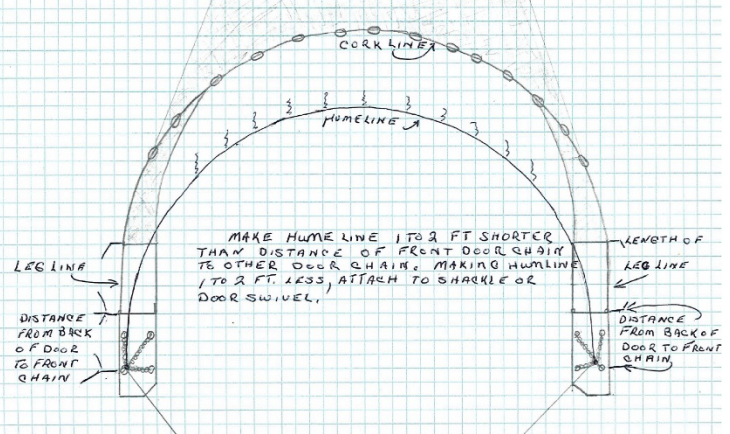 CORK LINE
HUMELINE
MAKE HUME LINE 1 TO 2 FT SHORTER
THAN DISTANCE OF FRONT DOOR CHAIN
TO OTHER DOOR CHAIN. MAKING HUMLINE
1 TO 2 FT. LESS, ATTACH TO SHACKLE OR
DOOR SWIVEL,
LEG LINE
DISTANCE
FROM BACK
OF DOOR
TO FRONT
CHAIN
LENGTH OF
LEG LINE
DISTANCE
FROM BACK OF
DOOR TO FRONT
CHAIN